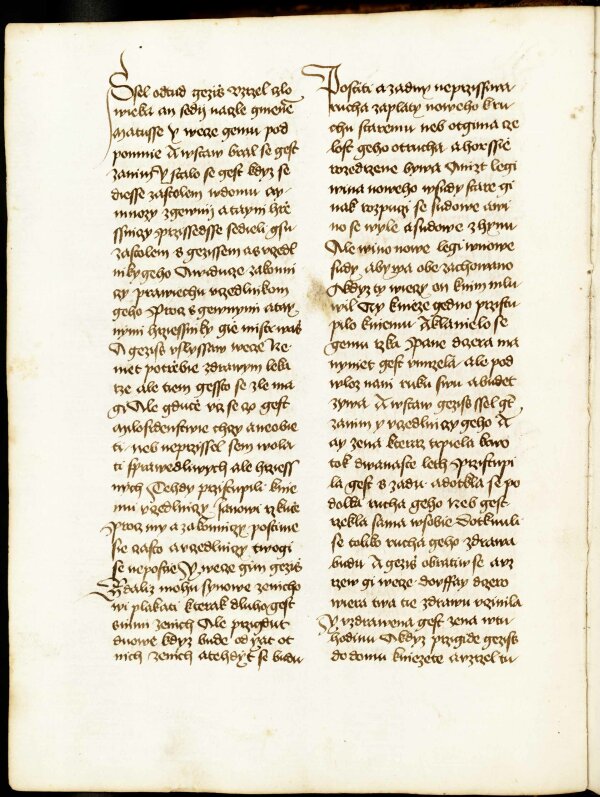 Ssel odtud gezis vzrzel czlo
wieka an sedij nacle gmene
Matusse Y wece gemu pod
ponmie A wstaw bral se gest
zanim Y stalo se gest kdyz se
diesse zastolem wdomu ay
mnozy zgewnij a taynij hrie
ssniczy przissedsse sedieli gsu
zastolem s gezissem a s vczedl
niky geho A widucze zakonni
czy prawiechu vczedlnikom
geho Procz s gewnymi a tay
nymi hrziessniky gie mistr was
A gezis vslyssaw wece Ne
niet potrebie zdrawym leka
rze ale tiem gessto se zle ma
gi Ale gducze vczte se czo gest
milosrdenstwie chczy a ne obie
ti neb neprzissel sem wola
ti sprawedliwych ale hrziess
nych Tehdy przistupili knie
mu vczedlniczy Janowi rzkuce
Procz my a zakonniczy postime
sie czasto a vczedlniczy twogi
se neposties Y wece gim gezis
Zdaliz mohu synowe zenicho
wi plakati kterak dluho gest
snimi zenich Ale przigdut
dnowe kdyz bude od yat ot
nich zenich a tehdyt se budu
Postiti a zadny neprzissiwa
rucha zaplaty noweho kru
chu staremu neb otgima cze
lost geho ot rucha a horssie
rozedrzenie bywa Aniz t legi
wina noweho wsudy stare gi
nak rozpuczi se sudowe a wi
no se wyle a sudowe zhynu
Ale wino nowe legi w nowe
sudy aby wa obe zachowano
A kdyz ty wieczy on knim mlu
wil Ay knieze gedno przistu
pilo kniemu A klanielo se
gemu rzka Pane dczera ma
nynie t gest vmrzela ale pod
wloz nani ruku swu a budet
zywa A wstaw gezis ssel gt
zanim y vczedlniczy geho A
ay zena kteraz trpiela krwo
tok dwanaste leth Przistupi
la gest s zadu a dotkla se po
dolka rucha geho Neb gest
rzekla sama w sobie Dotknuli
se toliko rucha geho zdrawa
budu A gezis obratiw se a vz
rzew gi wece dovffay dczero
wiera twa tie zdrawu vczinila
Y vzdrawena gest zena w tu
hodinu A kdyz przigide gezis
do domu kniezete a vzrzel tu